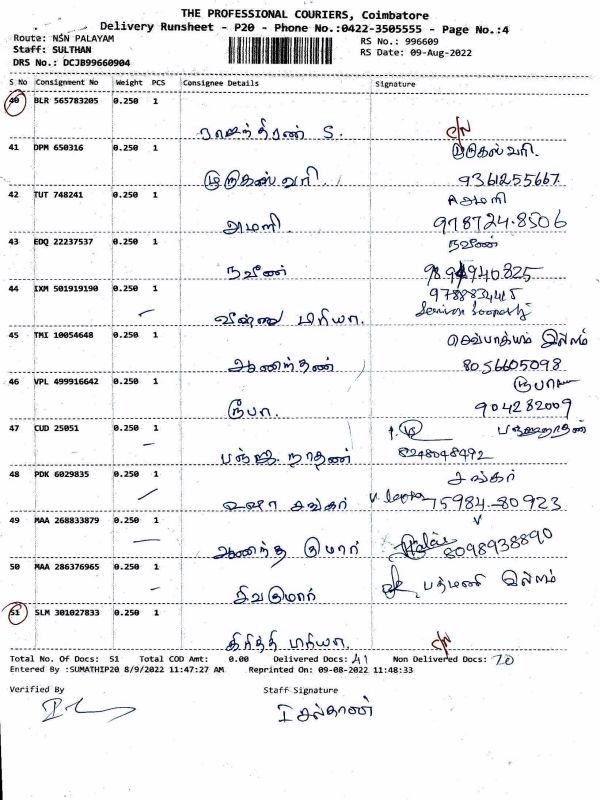 THE PROFESSIONAL COURIERS, Coimbatore
Delivery Runsheet - P20 - Phone No.:0422-3505555 - Page No.:4
Route: NSN PALAYAM
RS No.: 996609
Staff: SULTHAN
RS Date: 09-Aug-2022
DRS No.: DCJB99660904
S No Consignment No Weight PCS Consignee Details Signature
40 BLR 565783205 0.250 1
ராஜேந்திரன் S.
41 DPM 650316 0.250 1
முருகேஸ்வரி.
முருகேஸ்வரி.
9361255667
42 TUT 748241 0.250 1
அமனி.
978724.8506
43 EDQ 22237537 0.250 1
நவீண்
நவீண்
940825
44 IXM 501919190 0.250 1
பிரியா.
45 TMI 10054648 0.250 1
இல்லம்
ஆனந்தன்
8056605098
46 VPL 499916642 0.250 1
ரூபா
ரூபா
904282009
47 CUD 25051 0.250 1
8248048492
48 PDK 6029835 0.250 1
சங்கர்
சங்கர்
75984-80923
49 MAA 268833879 0.250 1
ஆனந்த குமார்
8098938890
50 MAA 286376965 0.250 1
பத்மணி இல்லம்
சிவகுமார்
51 SLM 301027833 0.250 1
பிரியா.
Total No. Of Docs: 51 Total COD Amt: 0.00 Delivered Docs: 41 Non Delivered Docs: 10
Entered By :SUMATHIP20 8/9/2022 11:47:27 AM Reprinted On: 09-08-2022 11:48:33
Verified By Staff Signature
சுல்தான்